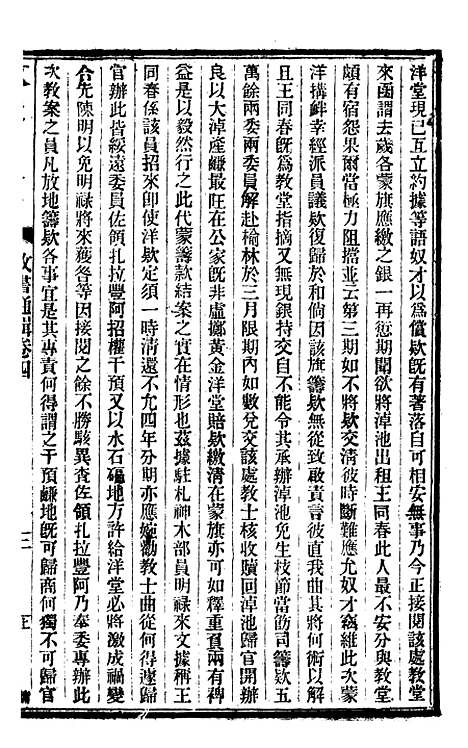 洋堂現已互立約據等語奴才以為償欵旣有著落自可相安無事乃今正接閱該處教堂
來函謂去歲各蒙旗應繳之銀一再愆期聞欲將淖池出租王同春此人最不安分與教堂
頗有宿怨果爾當極力阻擋並云第三期如不將欵交清彼時斷難應允奴才竊維此次蒙
洋搆衅幸經派員議欵復歸於和倘因該旗籌欵無從致啟責言彼直我曲其將何術以解
且王同春旣為教堂指摘又無現銀持交自不能令其承辦淖池免生枝節當飭司籌欵五
萬餘兩委兩委員解赴榆林於三月限期內如數兌交該處教士核收贖回淖池歸官開辦
良以大淖產鹻最旺在公家旣非虛擲黃金洋堂賠欵繳清在蒙旗亦可如釋重負兩有裨
益是以毅然行之此代蒙籌款結案之實在情形也茲據駐札神木部員明祿來文據稱王
同春係該員招來即使洋欵定須一時清還不允四年分期亦應婉勸教士曲從何得遽歸
官辦此皆綏遠委員佐領扎拉豐阿招權干預又以水石磕地方許給洋堂必將激成禍變
合先陳明以免明祿將來獲咎等因接閱之餘不勝駭異查佐領扎拉豐阿乃奉委專辦此
次教案之員凡放地籌欵各事宜是其專責何得謂之干預鹻地旣可歸商何獨不可歸官
政書通輯卷四